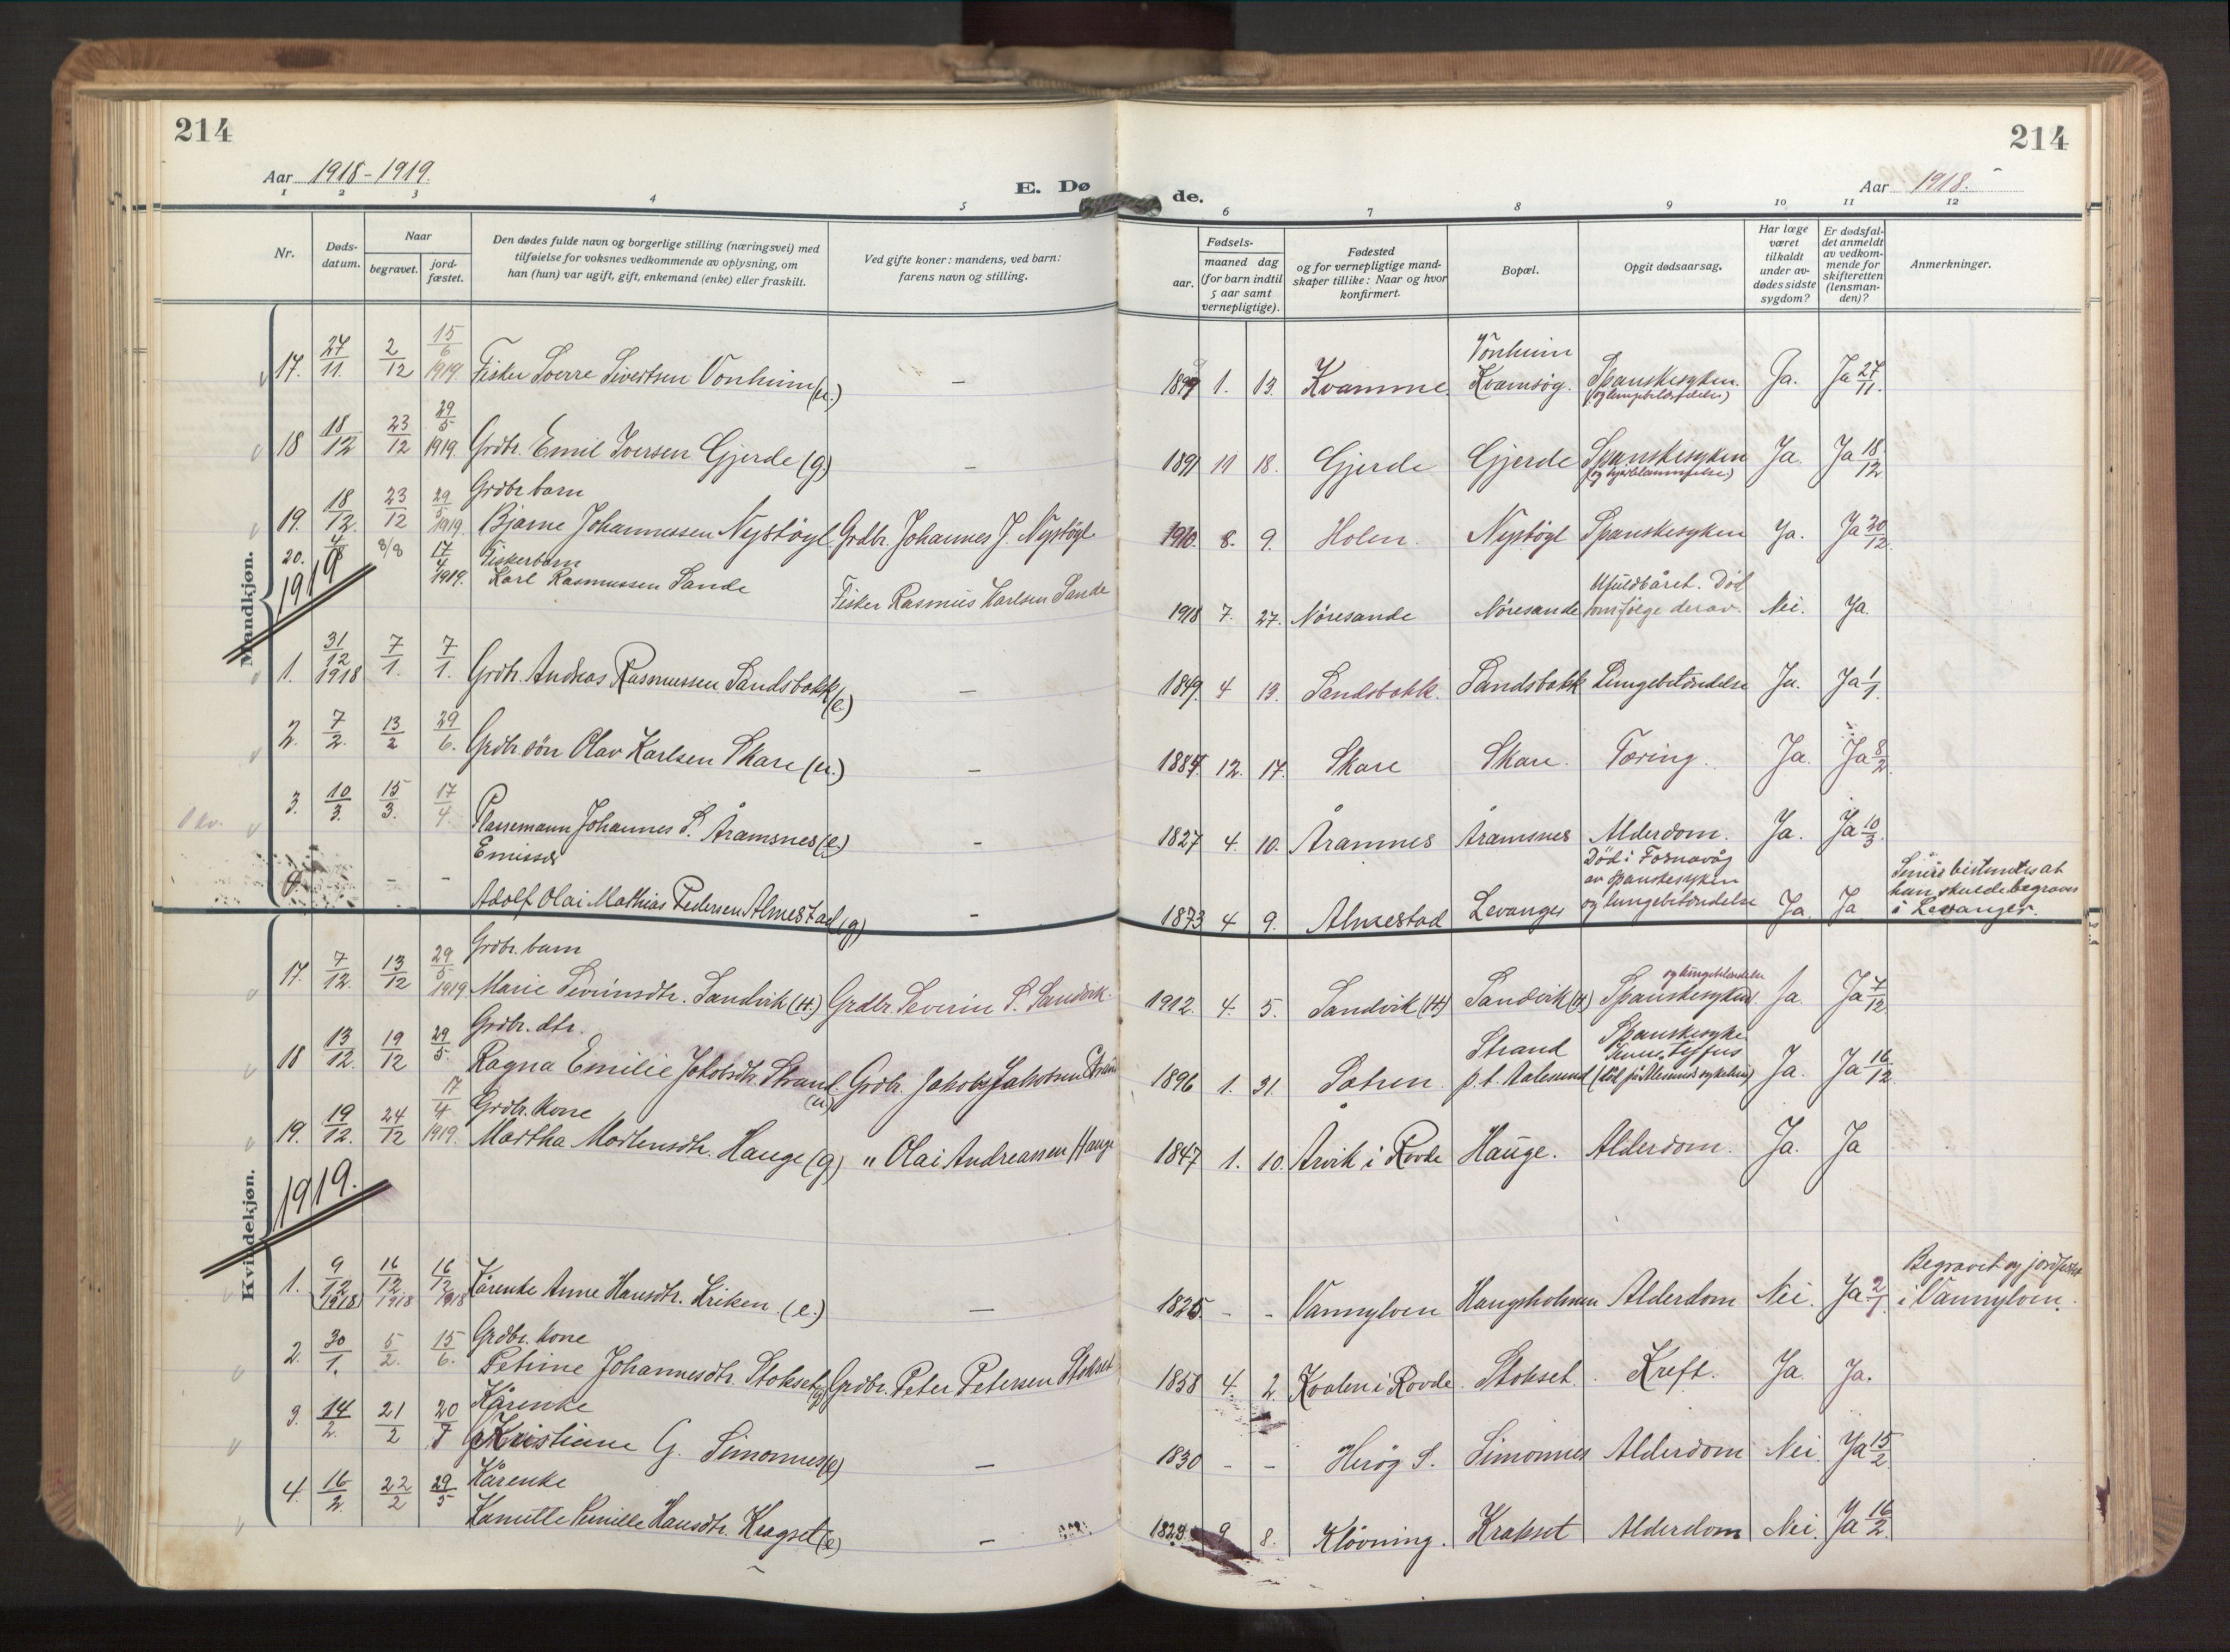 214
214
Aar 1918-1919.
E. Døde.
Aar 1918.
1 2 3 4 5 6 7 8 9 10 11 12
Nr.
Døds-datum.
Naar
begravet.
jord-fæstet.
Den dødes fulde navn og borgerlige stilling (næringsvei) med
tilføielse for voksnes vedkommende av oplysning, om
han (hun) var ugift, gift, enkemand (enke) eller fraskilt.
Ved gifte koner: mandens, ved barn:
farens navn og stilling.
Fødsels-
aar.
maaned dag
(for barn indtil
5 aar samt
vernepligtige).
Fødested
og for vernepligtige mand-
skaper tillike: Naar og hvor
konfirmert.
Bopæl.
Opgit dødsaarsag.
Har læge
været
tilkaldt
under av-
dødes sidste
sygdom?
Er dødsfal-
det anmeldt
av vedkom-
mende for
skifteretten
(lensman-
den)?
Anmerkninger.
Mandkjøn.
17. 27/11. 2/12 15/6 1919. Fisker Sverre Sivertsen Vonheim (u.) — 1899 1. 13. Kvamme Vonheim Kvamsøy. Spanskesyken. Ja. Ja 27/11.
18 18/12 23/12 29/5 1919. Grdbr. Emil Iversen Gjerde (g) — 1891 11 18. Gjerde Gjerde Spanskesyken Ja. Ja 18/12
19. 18/12. 23/12 29/5 1919. Grdbr. barn
Bjarne Johannessen Nystøyl Grdbr. Johannes J. Nystøyl 1910. 8. 9. Holen. Nystøyl Spanskesyken Ja. Ja 20/12.
20. 4/8 8/8 17/4 1919. Fiskerbarn
Karl Rasmussen Sande Fisker Rasmus Karlsen Sande 1918 7. 27. Nøresande Nøresande Ufuldbåret. Død som følge derav. Nei. Ja.
1919
1. 31/12 1918 7/1. 7/1. Grdbr. Andreas Rasmussen Sandsbakk (e.) — 1849. 4 19. Sandsbakk. Sandsbakk Lungebetændelse Ja. Ja 1/1.
2. 7/2. 13/2 29/6. Grdbr. søn Olav Karlsen Skare (u.) — 1884. 12. 17. Skare Skare. Tæring. Ja. Ja 8/2.
3. 10/3. 15/3. 17/4. Plassemann Johannes S. Åramsnes (e.) — 1827 4. 10. Åramnes Åramsnes Alderdom. Ja. Ja 10/3.
4. — — Emissær
Adolf Olai Mathias Pedersen Almestad (g) — 1873 4 9. Almestad Levanger Død i Fosnavåg
av spanskesyken
og lungebetændelse Ja Ja
han skulde begraves
i Levanger.
Kvindekjøn.
17. 7/12. 13/12 29/5 1919 Grdbr. barn
Marie Severinsdtr. Sandvik (H.) Grdbr. Severin S. Sandvik. 1912. 4. 5. Sandvik (H) Sandvik (H) Spanskesyken og lungebetændelse Ja. Ja 7/12.
18 13/12. 19/12 29/5. Grdbr. dtr.
Ragna Emilie Jakobsdtr. Strand (u) Grdbr. Jakob Jakobsen Strand 1896 1. 31. Sætren. Strand
p.t. Aalesund Spanskesyke Ja. Ja 16/12.
19. 19/12. 24/12 17/4 1919. Grdbr. kone
Martha Mortensdtr. Hauge (g) „ Olai Andreassen Hauge 1847 1. 10. Årvik i Rovde Hauge. Alderdom. Ja. Ja
1919.
1. 9/12 (1918) 16/12. 1918 16/12 1918 Kårenke Anne Hansdtr. Kriken. (e.) — 1825. - - Vannylven Haugsholmen Alderdom Nei. Ja 2/1. Begravet og jordfestet
i Vannylven.
2. 30/1. 5/2. 15/6. Grdbr. kone
Petrine Johannesdtr. Stokset (g) Grdbr. Peter Petersen Stokset 1858 4. 2. Kvalen i Rovde. Stokset. Kreft. Ja. Ja.
3. 14/2. 21/2 20/7 Kårenke
Kristiane G. Simonnes (e) — 1830 - - Herøy S. Simonnes Alderdom Nei. Ja 15/2.
4. 16/2. 22/2 29/5 Kårenke
Hansdtr. Kragset (e) — 1829 9 8. Kløvning. Krakset Alderdom Nei. Ja 16/2.